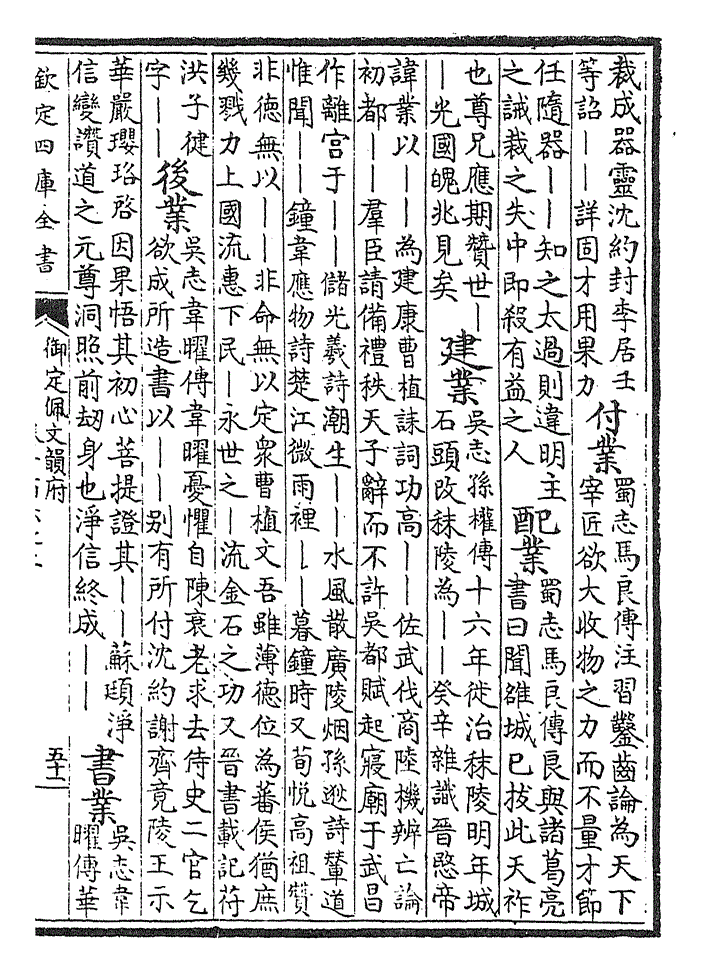 裁成器靈沈約封李居壬
等詔——詳固才用果力
付業
蜀志馬良傳注習鑿齒論為天下
宰匠欲大收物之力而不量才節
任隨器——知之太過則違明主
之誡裁之失中即殺有益之人
配業
蜀志馬良傳良與諸葛亮
書曰聞雒城已拔此天祚
也尊兄應期贊世—
—光國魄兆見矣
建業
吳志孫權傳十六年徙治秣陵明年城
石頭改秣陵為——癸辛雜識晉愍帝
諱業以——為建康曹植誄詞功高——佐武伐商陸機辨亡論
初都——羣臣請備禮秩天子辭而不許吳都賦起寢廟于武昌
作離宫于——儲光羲詩潮生——水風散廣陵烟孫逖詩輦道
惟聞——鐘韋應物詩楚江微雨裡——暮鐘時又荀悦高祖贊
非德無以——非命無以定衆曹植文吾雖薄德位為蕃侯猶庶
幾戮力上國流惠下民—永世之—流金石之功又晉書載記苻
洪子健
字——
後業
吳志韋曜傳韋曜憂懼自陳衰老求去侍史二官乞
欲成所造書以——别有所付沈約謝齊竟陵王示
華嚴瓔珞啓因果悟其初心菩提證其——蘇頲淨
信變讚道之元尊洞照前刼身也淨信終成——
書業
吳志韋
曜傳華
欽定四庫全書
御定佩文韻府
五十二